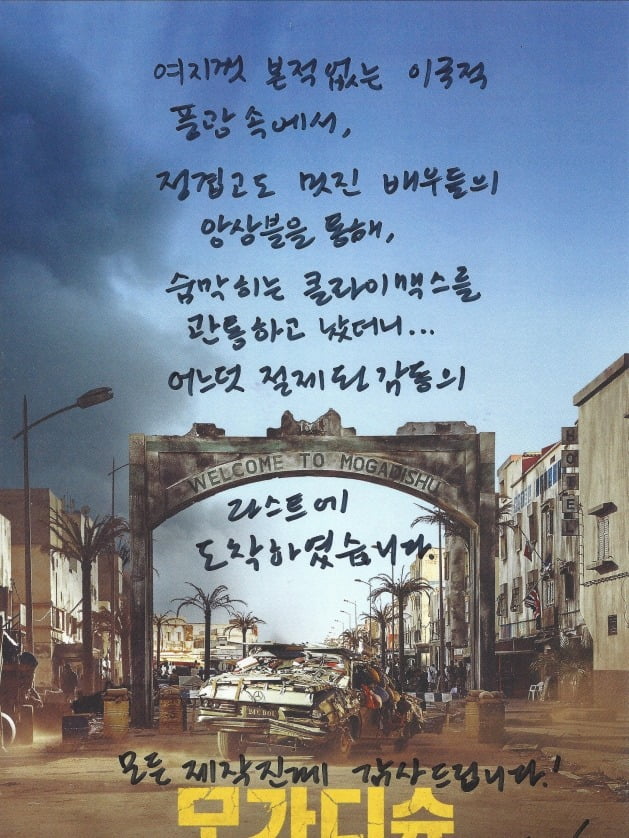 여지껏 본적 없는 이국적
풍광 속에서,
정겹고도 멋진 배우들의
앙상블을 통해,
숨막히는 클라이맥스를
관통하고 났더니...
어느덧 절제된 감동의
WELCOME TO MOGADISHU
라스트에
도착하였습니다.
HOTEL
모든 제작진께 감사드립니다!
모가디슈